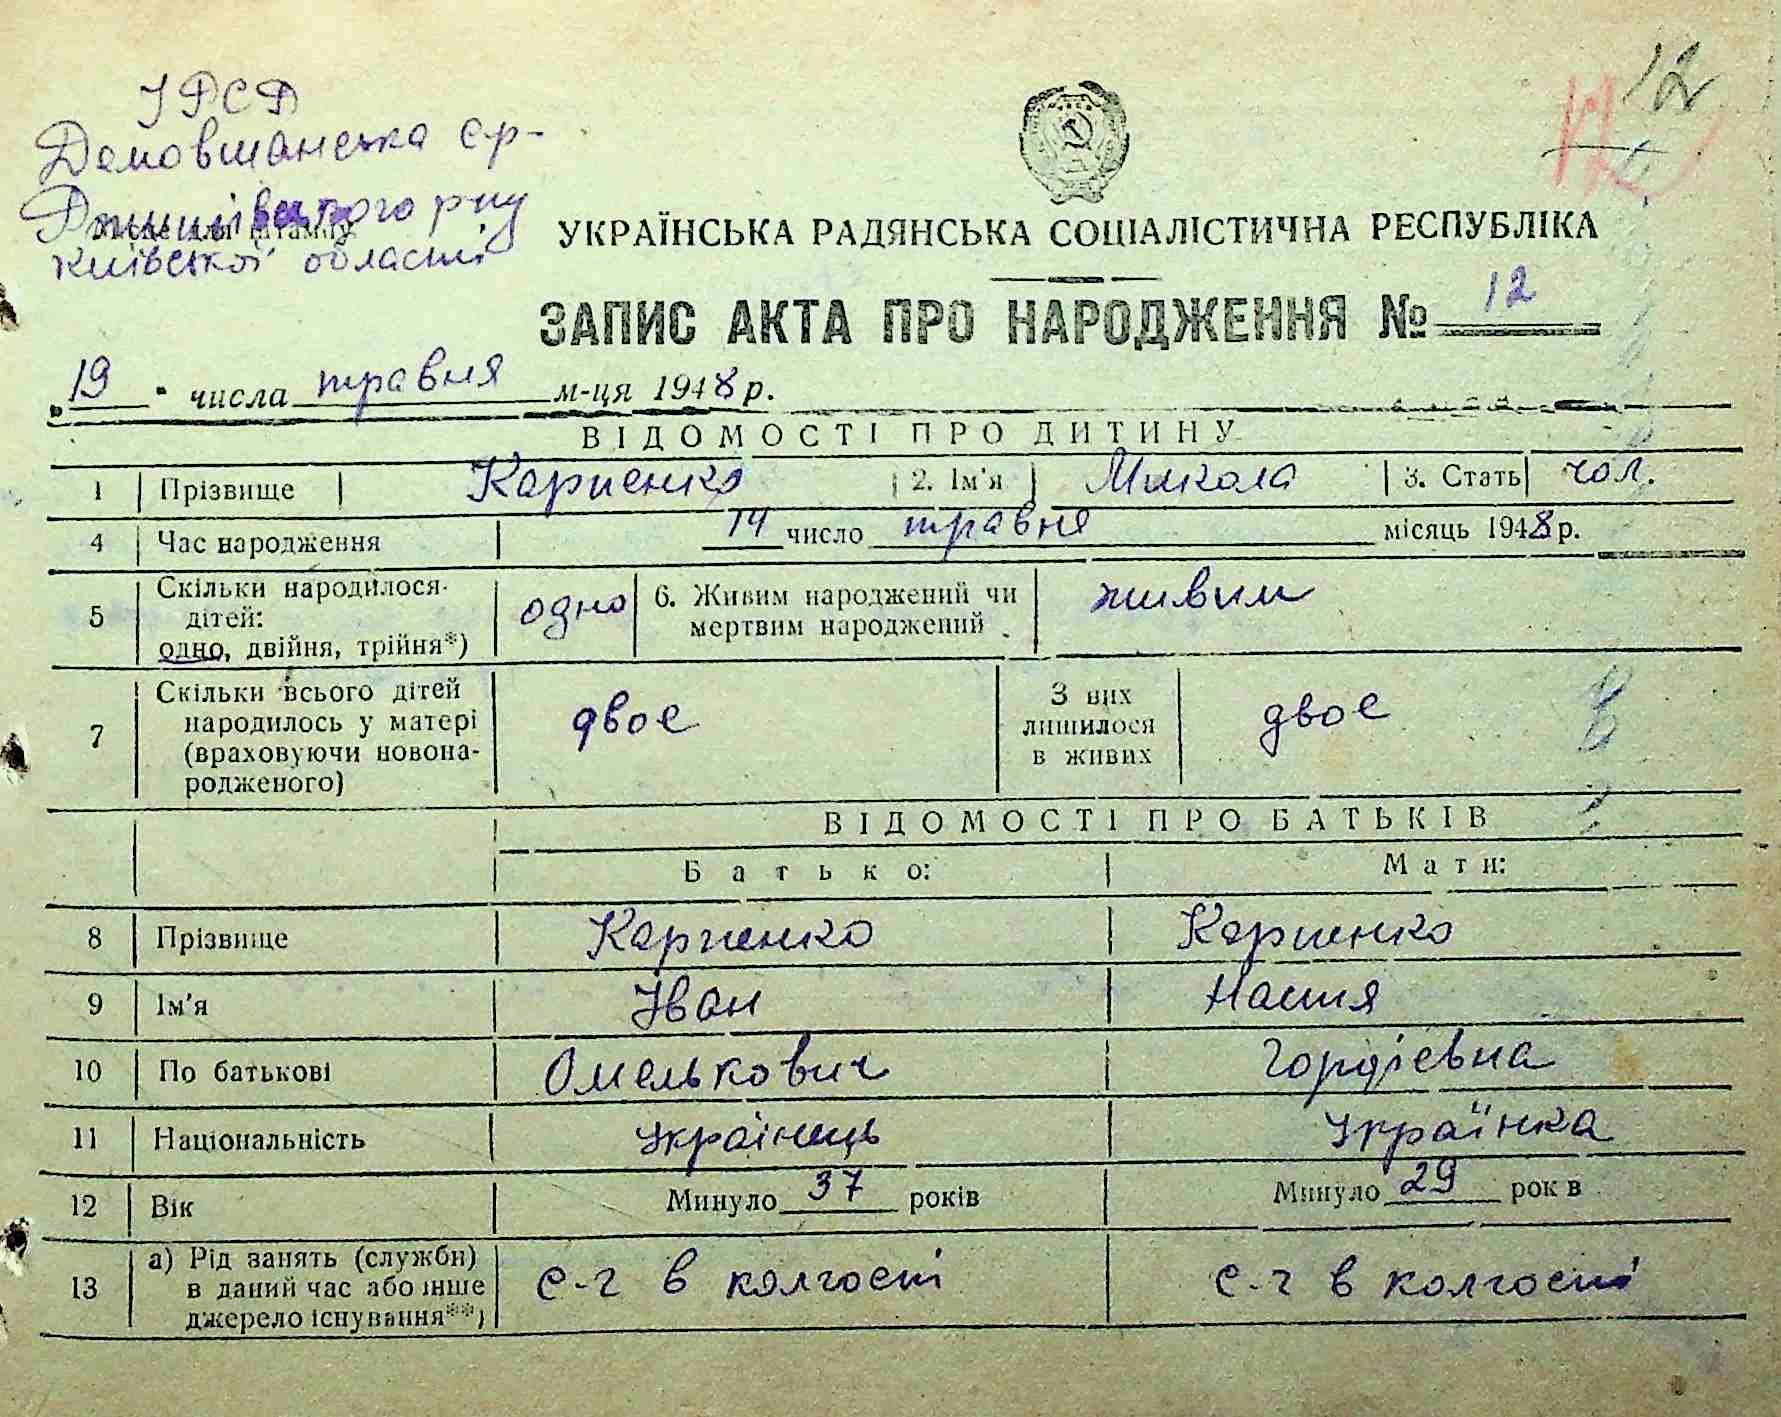 УРСР
Демовщанська с-р-
Ржищівського р-ну
Місце для штампу
Київської області
12
12
УКРАЇНСЬКА РАДЯНСЬКА СОЦІАЛІСТИЧНА РЕСПУБЛІКА
ЗАПИС АКТА ПРО НАРОДЖЕННЯ № 12
„19" числа травня м-ця 1948 р.
ВІДОМОСТІ ПРО ДИТИНУ
1 Прізвище Карпенко 2. Ім'я Микола 3. Стать чол.
4 Час народження 14 число травня місяць 1948 р.
5 Скільки народилося дітей: одно, двійня, трійня*) одно 6. Живим народжений чи мертвим народжений живим
7 Скільки всього дітей народилось у матері (враховуючи новонародженого) двоє З них лишилося в живих двоє
ВІДОМОСТІ ПРО БАТЬКІВ
Батько: Мати:
8 Прізвище Карпенко Карпенко
9 Ім'я Іван Настя
10 По батькові Омелькович Гордієвна
11 Національність Українець Українка
12 Вік Минуло 37 років Минуло 29 рок в
13 а) Рід занять (служби) в даний час або інше джерело існування**) с-г в колгоспі с-г в колгоспі